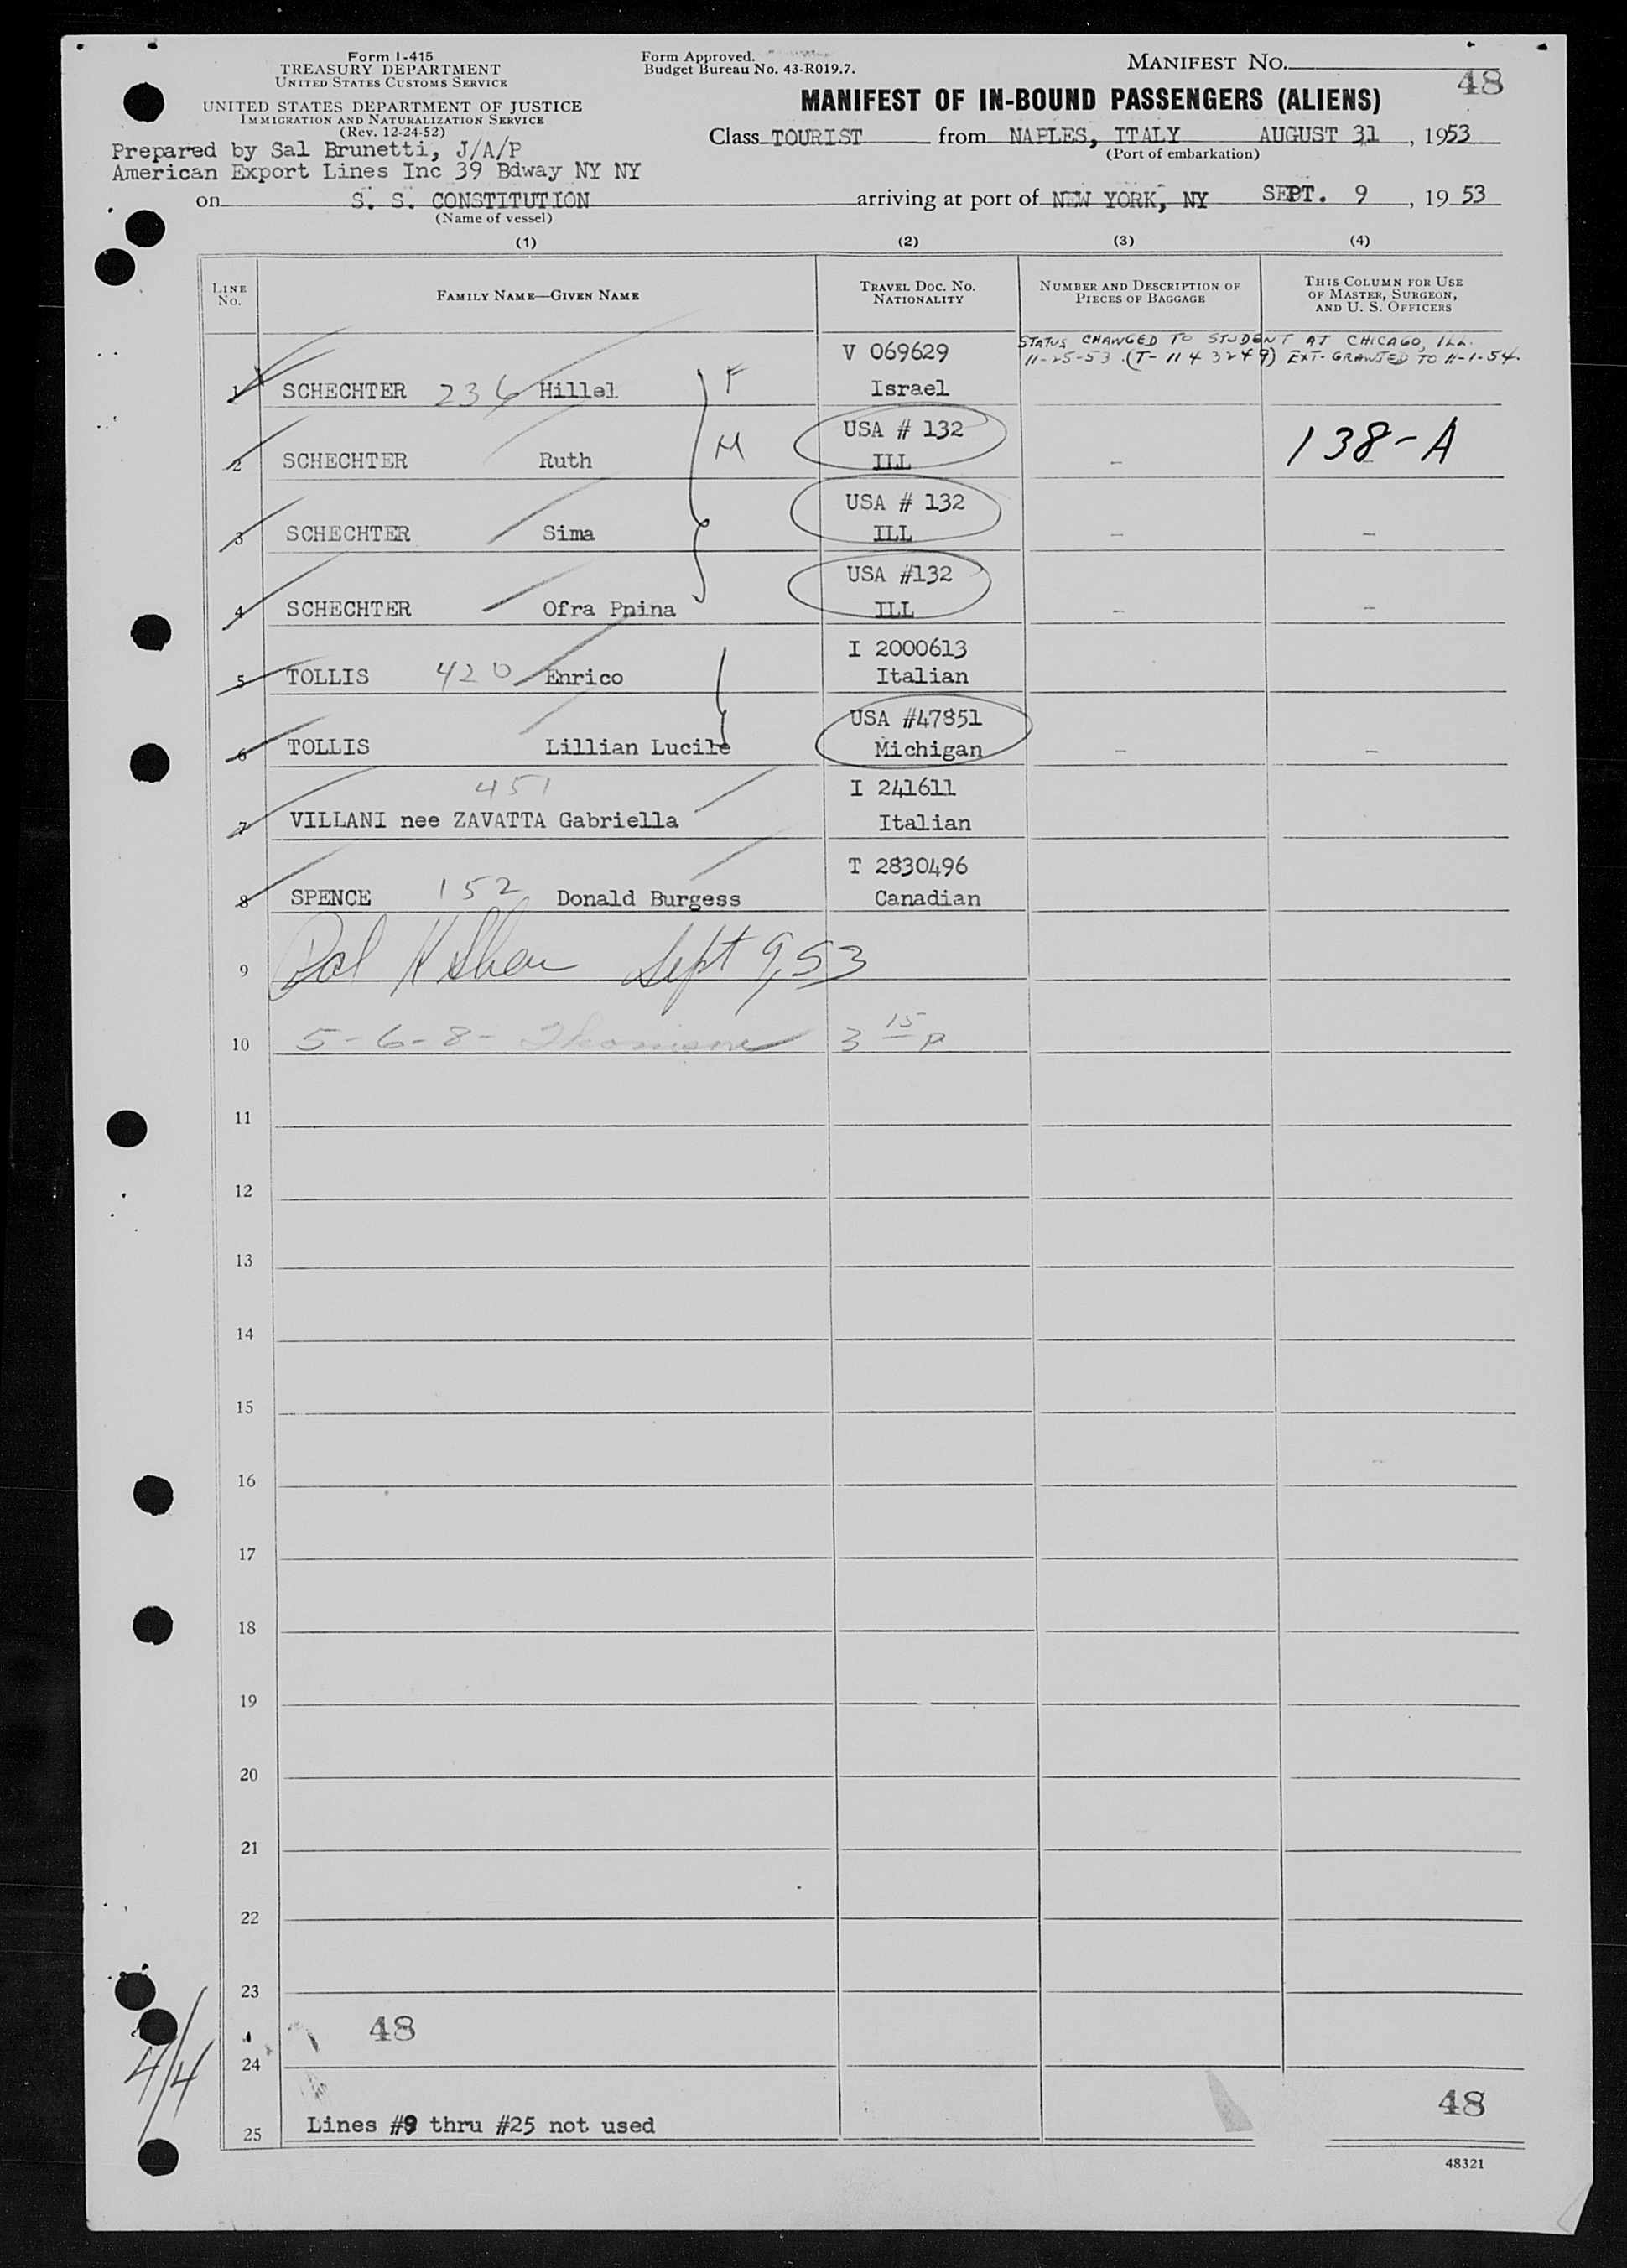 Form I-415
TREASURY DEPARTMENT
UNITED STATES CUSTOMS SERVICE
UNITED STATES DEPARTMENT OF JUSTICE
IMMIGRATION AND NATURALIZATION SERVICE
(Rev. 12-24-52)
Form Approved.
Budget Bureau No. 43-R019.7.
MANIFEST NO.
48
MANIFEST OF IN-BOUND PASSENGERS (ALIENS)
Class TOURIST from NAPLES, ITALY AUGUST 31, 1953
(Port of embarkation)
Prepared by Sal Brunetti, J/A/P
American Export Lines Inc 39 Bdway NY NY
on S. S. CONSTITUTION arriving at port of NEW YORK, NY SEPT. 9, 19 53
(Name of vessel)
(1) (2) (3) (4)
LINE NO. FAMILY NAME—GIVEN NAME TRAVEL DOC. NO. NATIONALITY NUMBER AND DESCRIPTION OF PIECES OF BAGGAGE THIS COLUMN FOR USE OF MASTER, SURGEON, AND U. S. OFFICERS
STATUS CHANGED TO STUDENT AT CHICAGO, ILL.
11-25-53. (T-1143249) EXT. GRANTED TO 11-1-54.
V 069629
1 SCHECHTER 236 Hillel F Israel
USA # 132 138-A
2 SCHECHTER Ruth M ILL –
USA # 132
3 SCHECHTER Sima ILL – –
USA #132
4 SCHECHTER Ofra Pnina ILL – –
I 2000613
5 TOLLIS 420 Enrico Italian
USA #47851
6 TOLLIS Lillian Lucile Michigan – –
451 I 241611
7 VILLANI nee ZAVATTA Gabriella Italian
T 2830496
8 SPENCE 152 Donald Burgess Canadian
9 Sept 9, 53
10 5-6-8- 3 15 p
11
12
13
14
15
16
17
18
19
20
21
22
23
48
24
4/4
48
25 Lines #9 thru #25 not used
48321